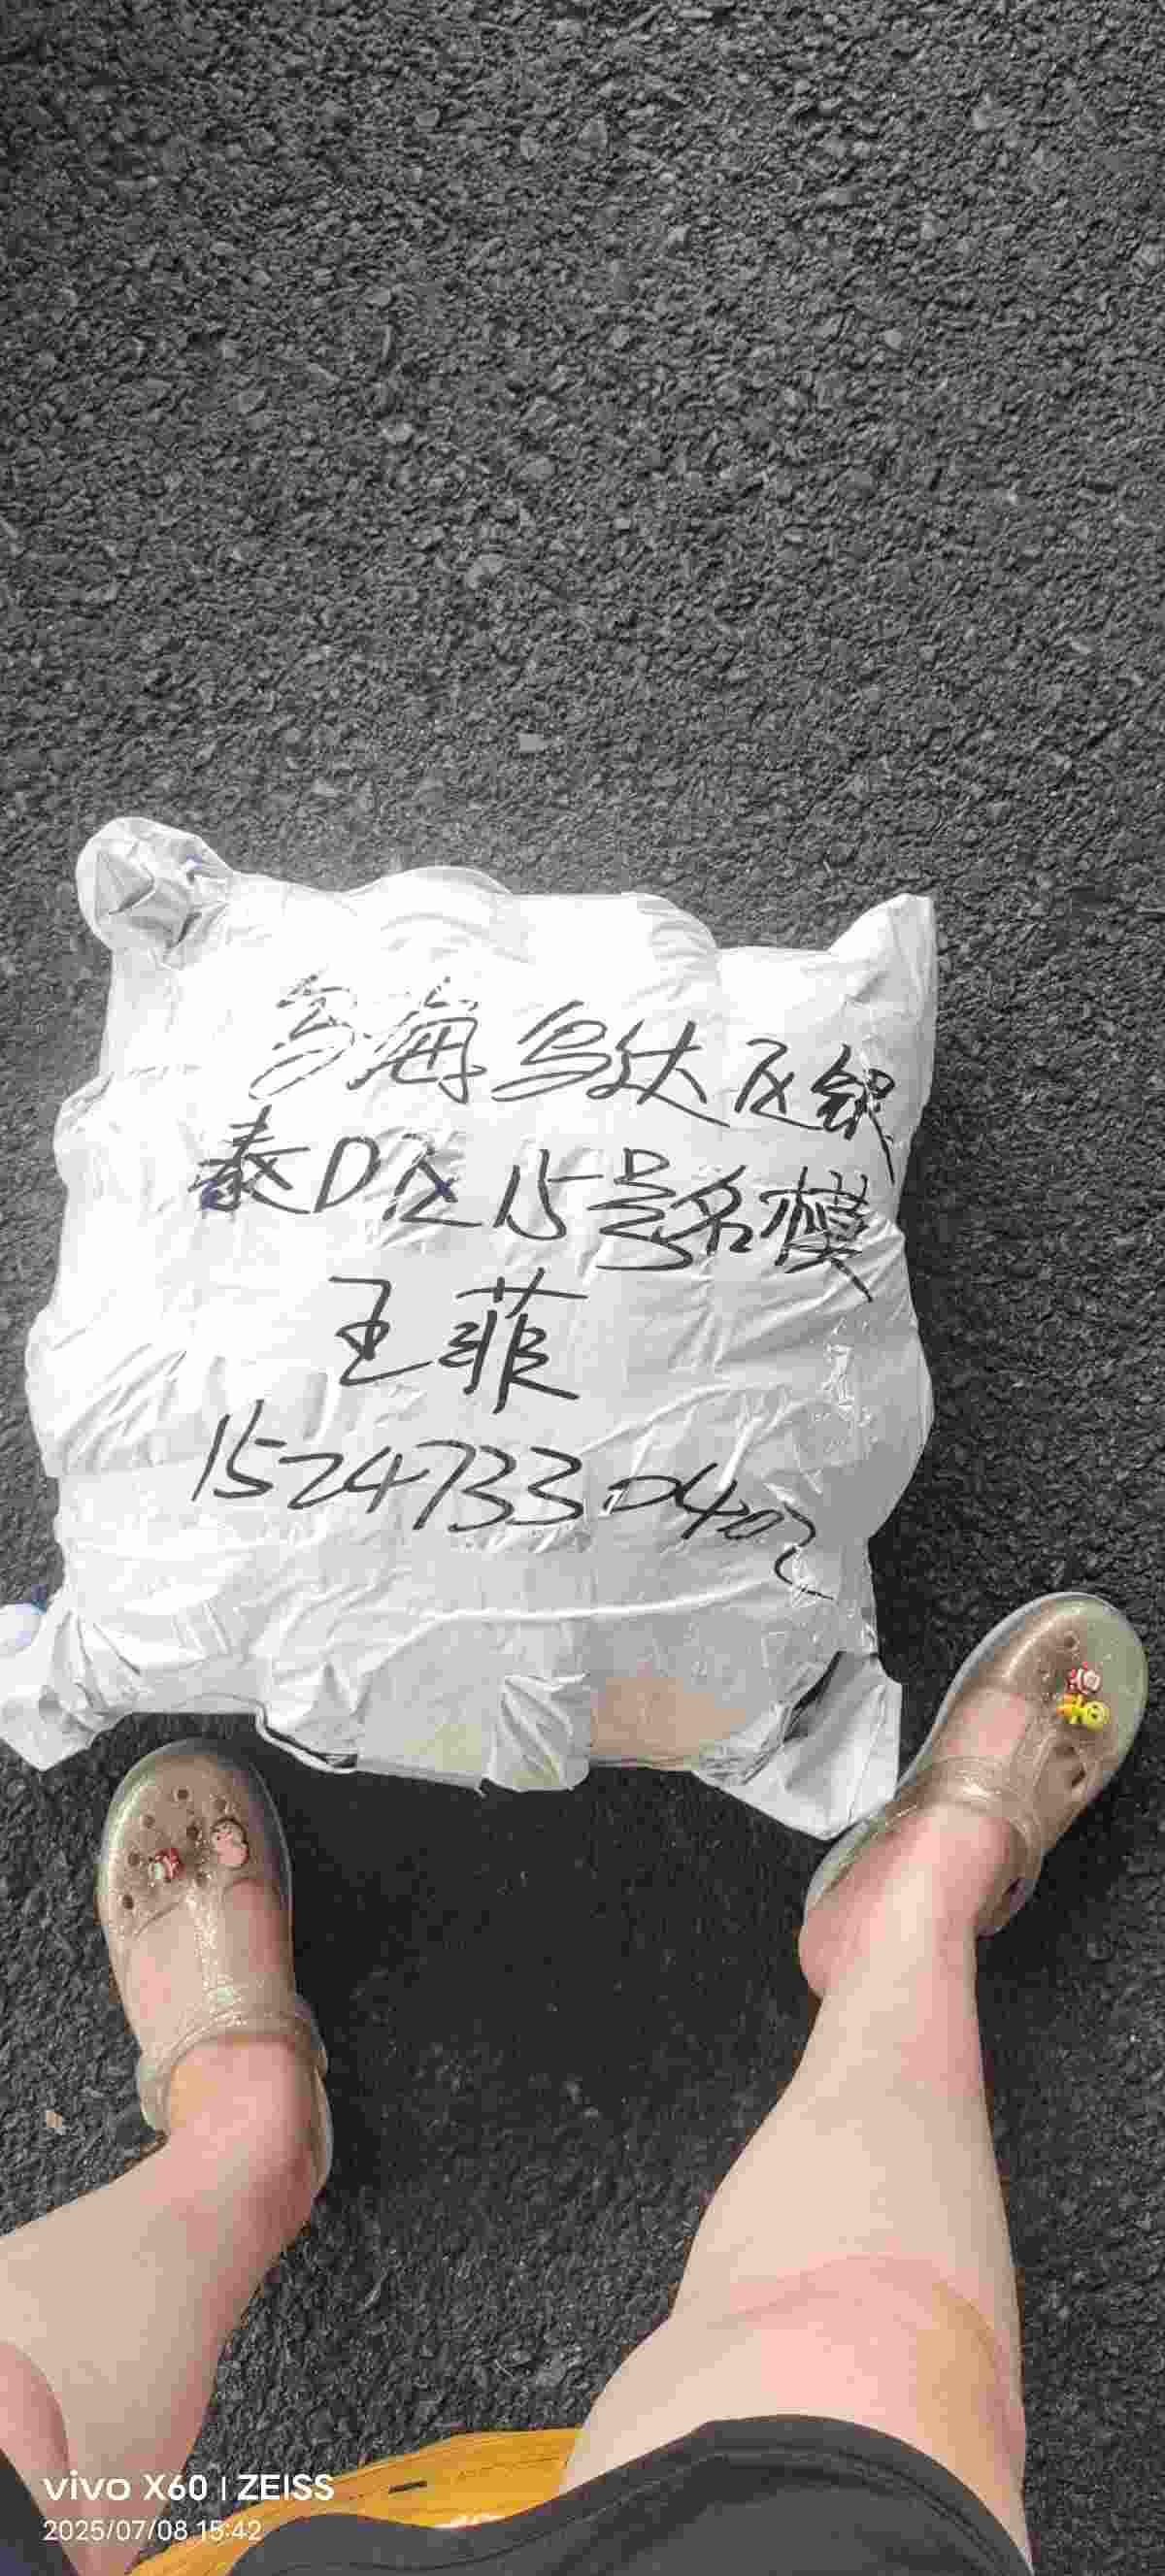 乌海乌达区银
泰D区15号名模
王菲
15247330402
vivo X60 | ZEISS
2025/07/08 15:42